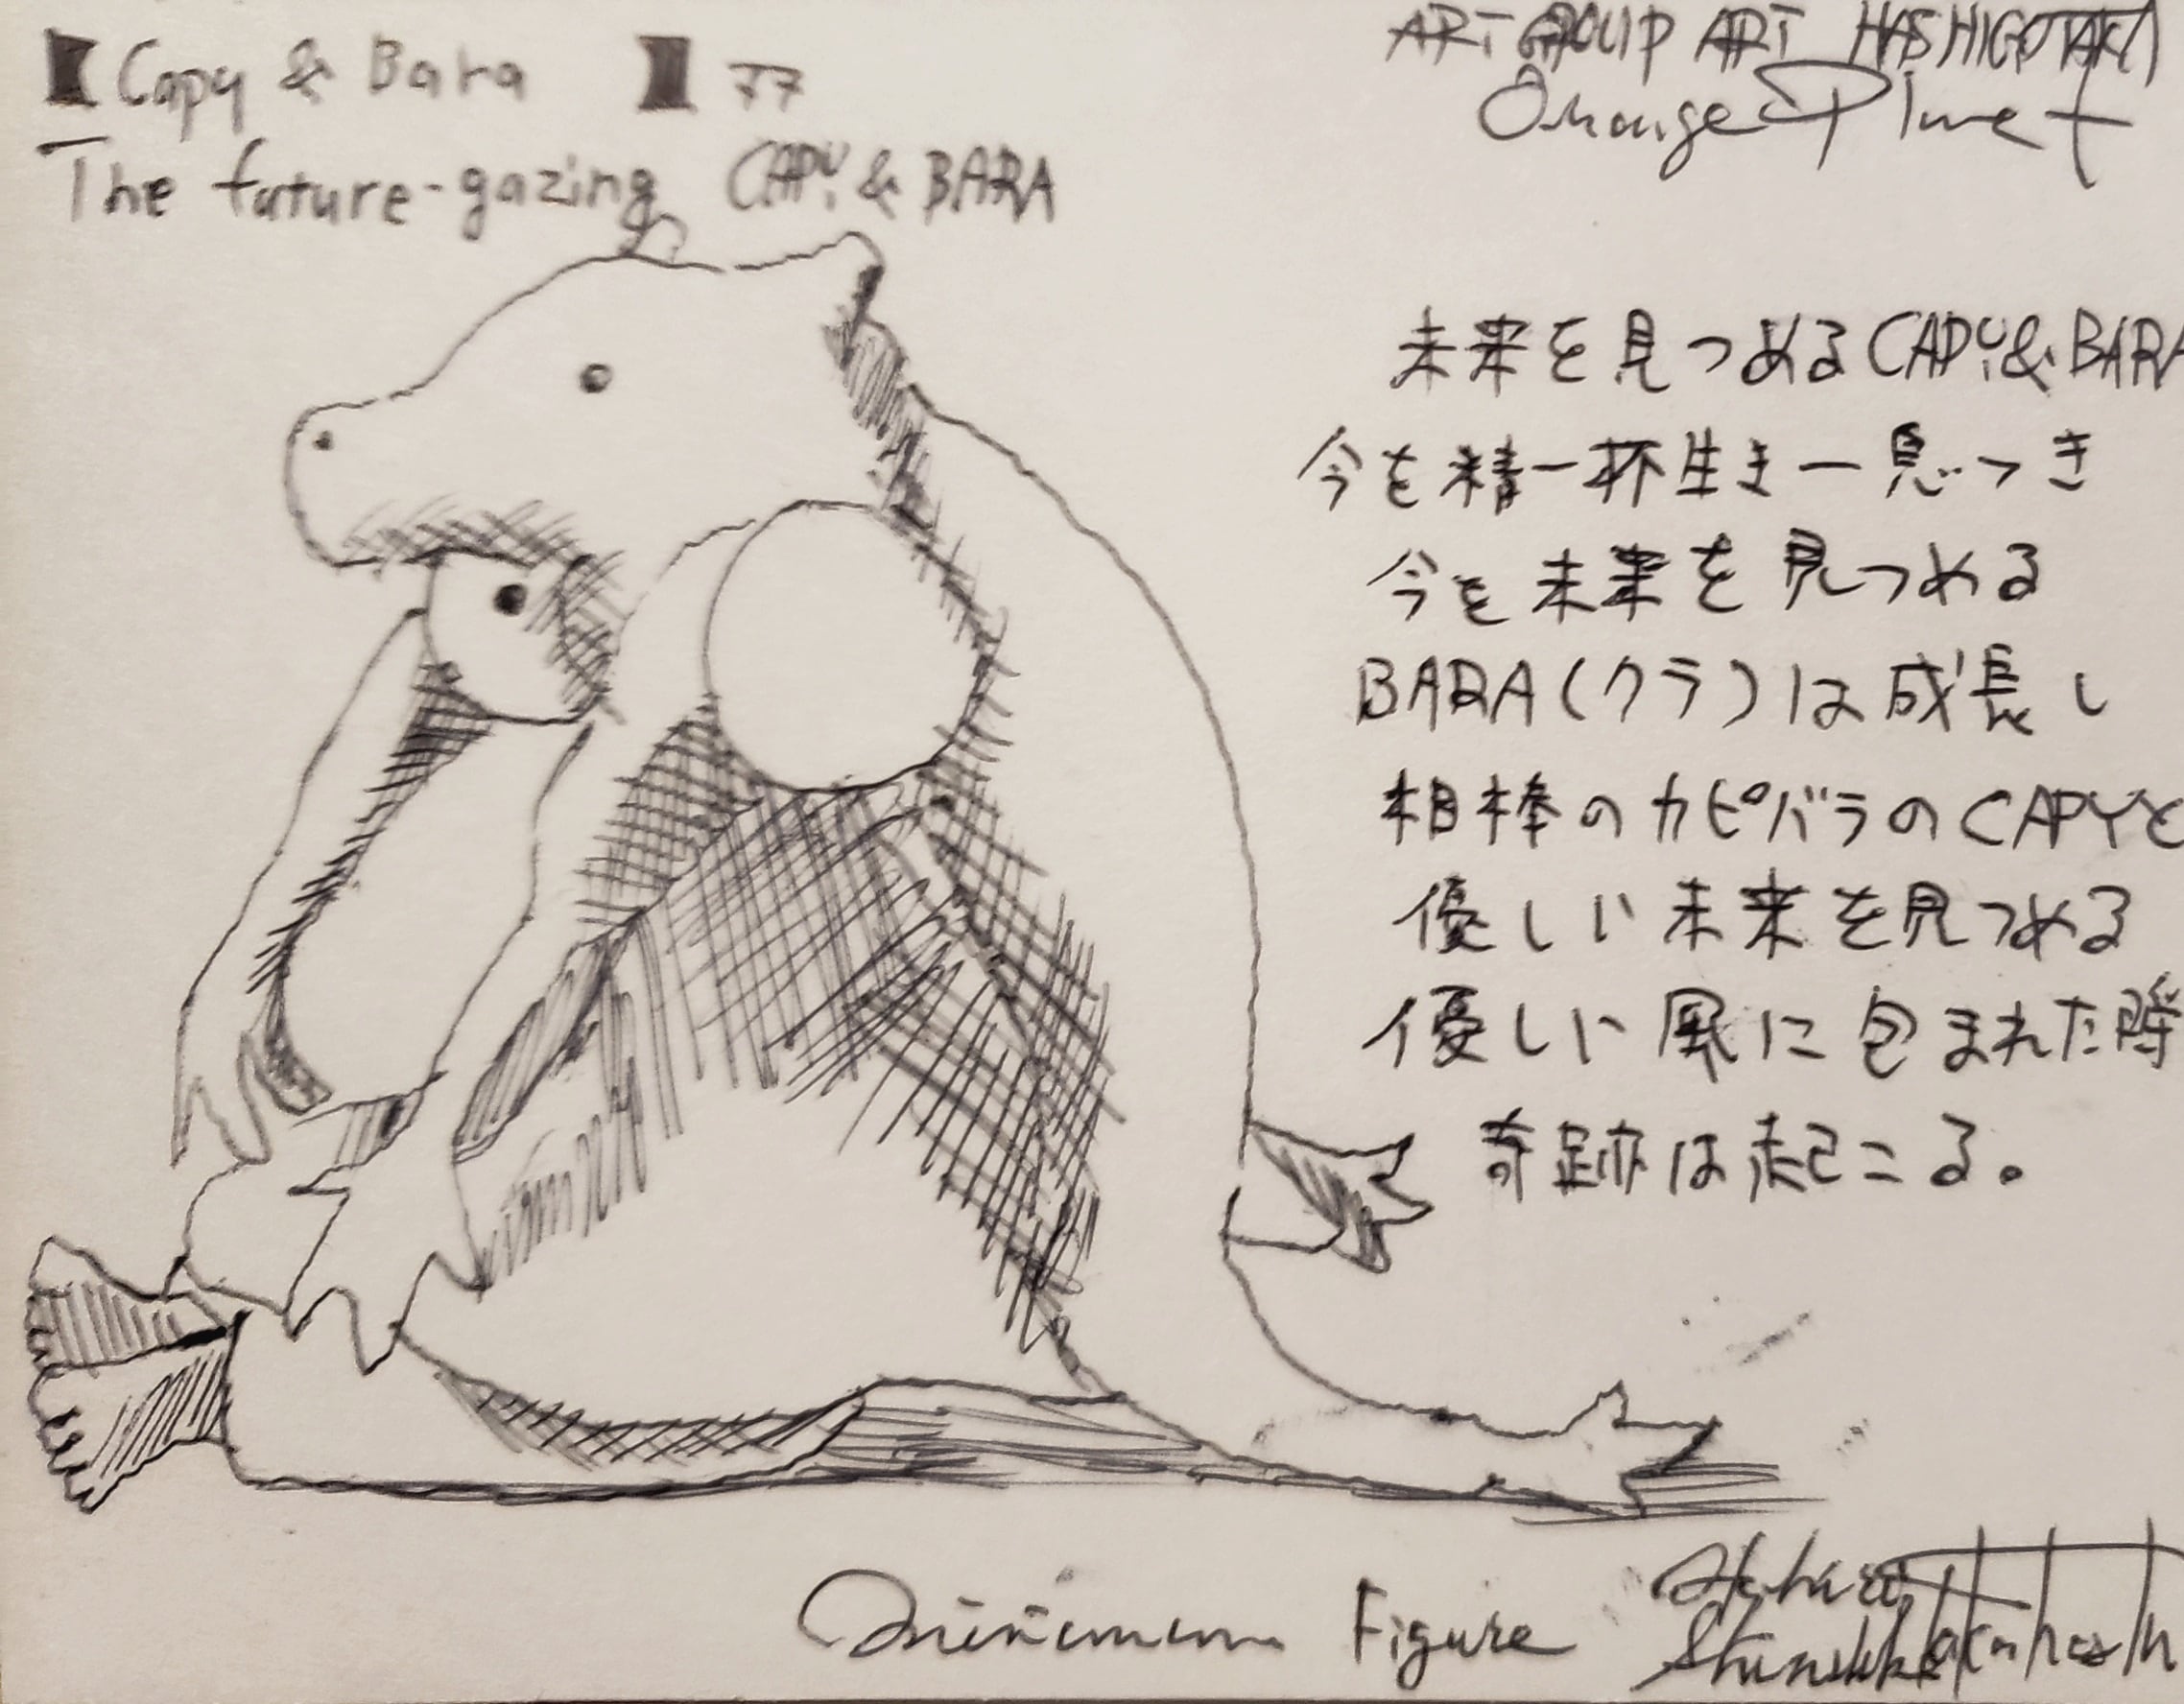 【Capy & Bara 】77
The future-gazing CAPY & BARA
ART GROUP ART HASHIGOTAKA
Orange Planet
未来を見つめるCAPY&BARA
今を精一杯生き一息つき
今を未来を見つめる
BARA(クラ)は成長し
相棒のカピバラのCAPYと
優しい未来を見つめる
優しい風に包まれた時
奇跡は起こる。
Minimum Figure
Takahashi